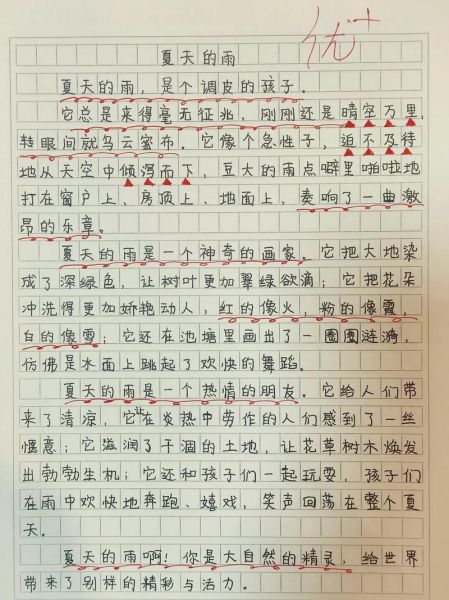 优+
夏天的雨
夏天的雨，是个调皮的孩子。
它总是来得毫无征兆，刚刚还是晴空万里，
转眼间就乌云密布。它像个急性子，迫不及待
地从天空中倾泻而下，豆大的雨点噼里啪啦地
打在窗户上、房顶上、地面上，奏响了一曲激
昂的乐章。
夏天的雨是一个神奇的画家，它把大地染
成了深绿色，让树叶更加翠绿欲滴；它把花朵
冲洗得更加娇艳动人，红的像火，粉的像霞，
白的像雪；它还在池塘里画出了一圈圈涟漪，
仿佛是水面上跳起了欢快的舞蹈。
夏天的雨是一个热情的朋友。它给人们带
来了清凉，它让在炎热中劳作的人们感到了一丝
惬意；它滋润了干涸的土地，让花草树木焕发
出勃勃生机；它还和孩子们一起玩耍，孩子们
在雨中欢快地奔跑、嬉戏，笑声回荡在整个夏
天。
夏天的雨啊！你是大自然的精灵，给世界
带来了别样的精彩与活力。